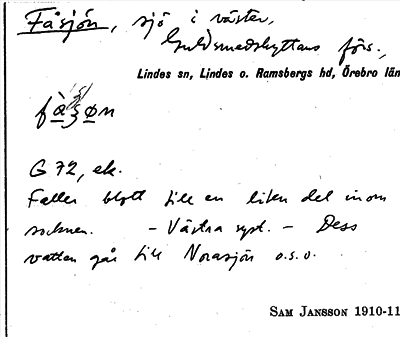 Fåsjön, sjö i väster,
Guldsmedshyttans förs.,
Lindes sn, Lindes o. Ramsbergs hd, Örebro län
G 72, ek.
Faller blott till en liten del inom
socknen. - Västra syst. - Dess
vatten går till Norasjön o.s.v.
SAM JANSSON 1910-11